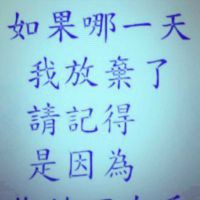 如果哪一天
我放棄了
請記得
是因為